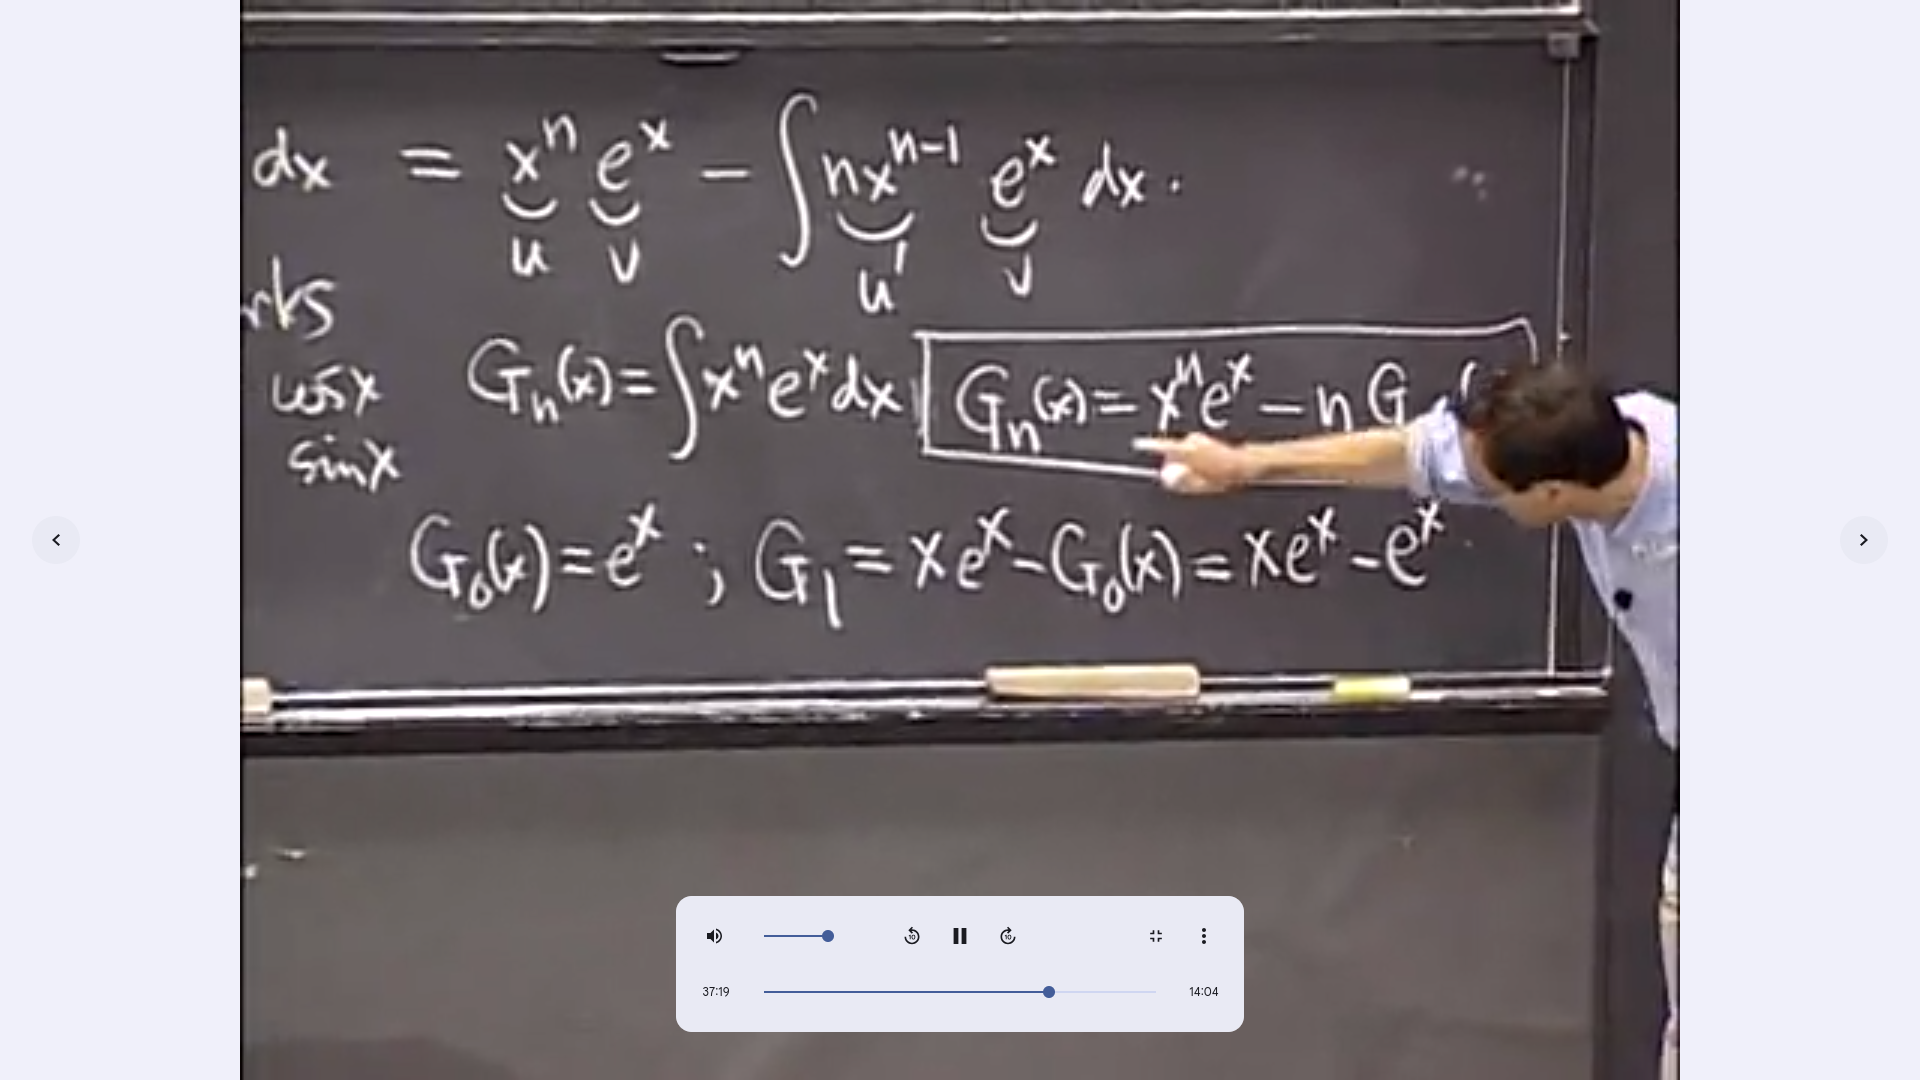 dx = xⁿ eˣ − ∫ nxⁿ⁻¹ eˣ dx.
u v u' v
cos x
sin x
Gₙ(x) = ∫ xⁿ eˣ dx
Gₙ(x) = xⁿeˣ − n G
G₀(x) = eˣ ; G₁ = xeˣ − G₀(x) = xeˣ − eˣ
10 10
37:19 14:04